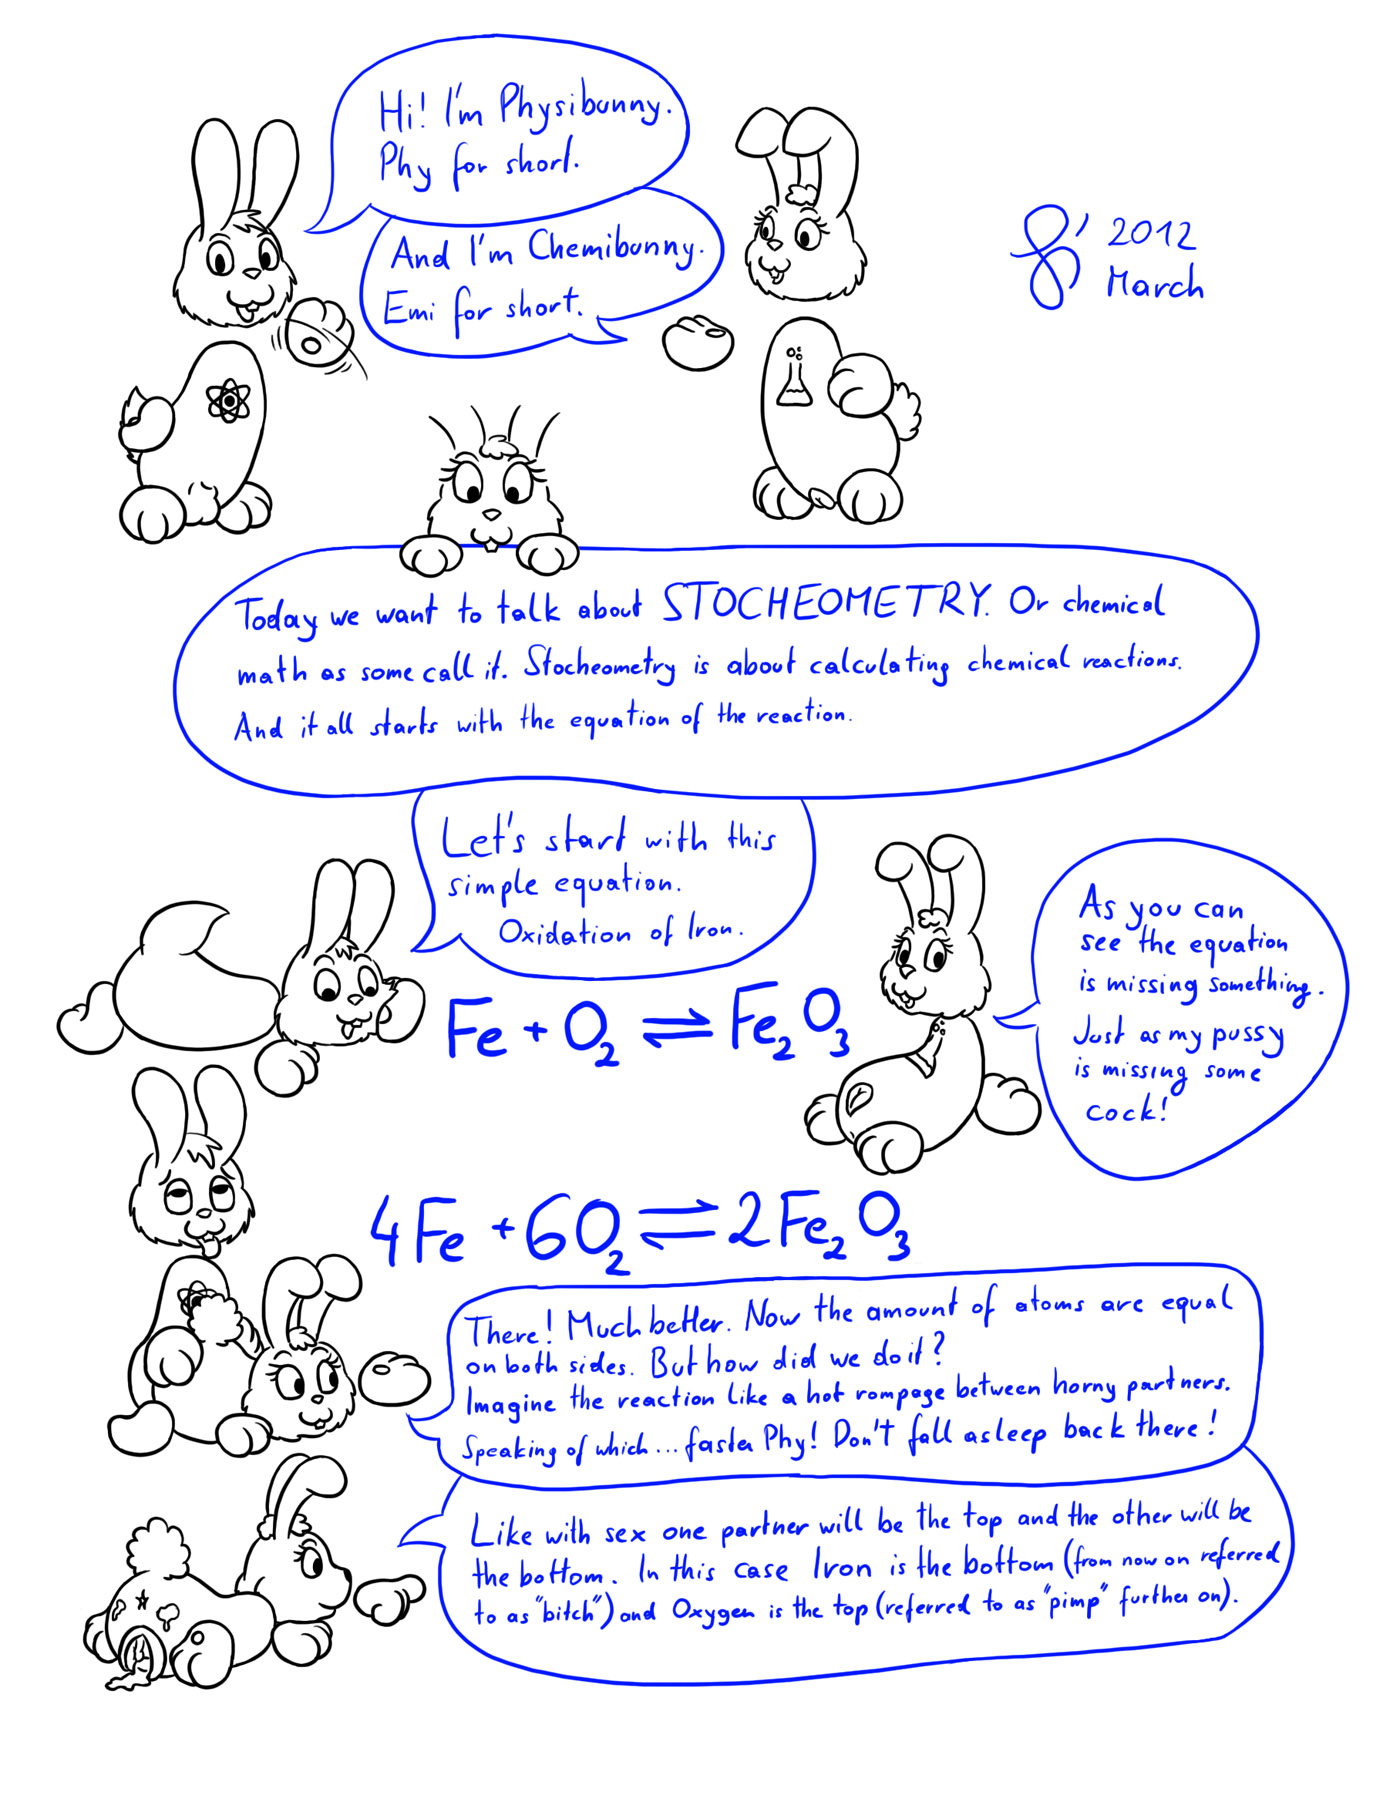 Hi! I'm Physibunny.
Phy for short.
And I'm Chemibunny.
Emi for short.
2012
March
Today we want to talk about STOCHEOMETRY. Or chemical
math as some call it. Stocheometry is about calculating chemical reactions.
And it all starts with the equation of the reaction.
Let's start with this
simple equation.
Oxidation of Iron.
Fe + O₂ ⇌ Fe₂O₃
As you can
see the equation
is missing something.
Just as my pussy
is missing some
cock!
4Fe + 6O₂ ⇌ 2Fe₂O₃
There! Much better. Now the amount of atoms are equal
on both sides. But how did we do it?
Imagine the reaction like a hot rompage between horny partners.
Speaking of which... faster Phy! Don't fall asleep back there!
Like with sex one partner will be the top and the other will be
the bottom. In this case Iron is the bottom (from now on referred
to as "bitch") and Oxygen is the top (referred to as "pimp" further on).